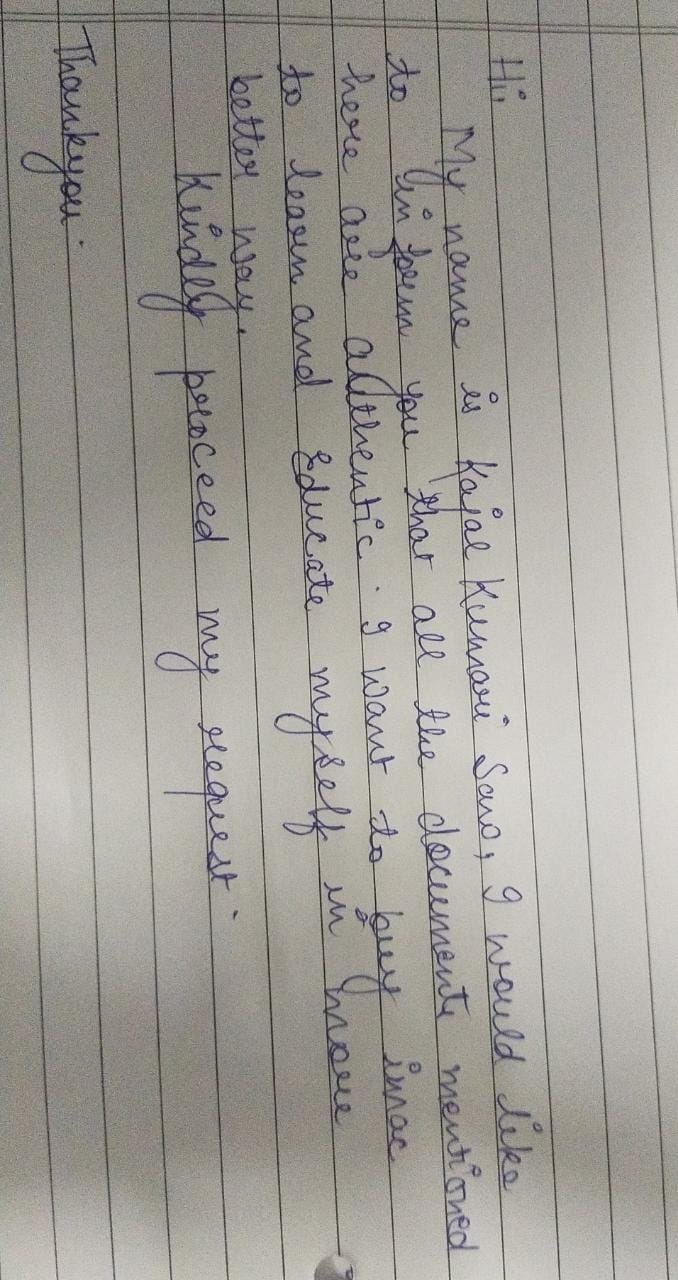 Hi,
My name is Kajal Kumari Sao, I would like
to inform you that all the documents mentioned
here are authentic. I want to buy imac
to learn and Educate myself in more
better way.
Kindly proceed my request.
Thankyou.